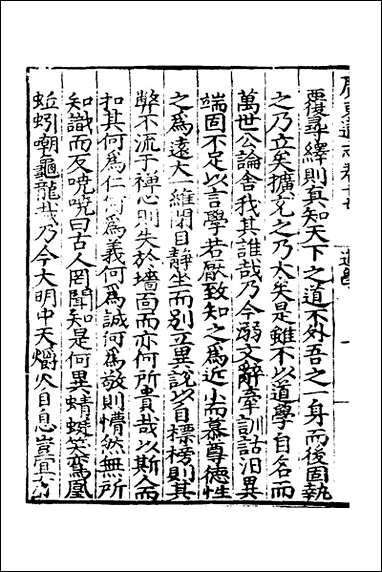 覆尋繹則真知天下之道不外吾之一身而後固執
之乃立矣擴充之乃大矣是雖不以道學自名而
萬世公論舍我其誰哉乃今溺文辭牽訓詁汨異
端固不足以言學若厭致知之為近小而慕尊德性
之為遠大一維閉目靜坐而別立異說以自標榜則其
弊不流于禪心則失於墻面而亦何所貴哉以斯人而
扣其何為仁何為義何為誠何為敬則懵然無所
知識而反嘵嘵曰古人罔聞知是何異蜻蜓笑鸞鳳
蚯蚓嘲龜龍哉乃今大明中天爝火自息豈宜